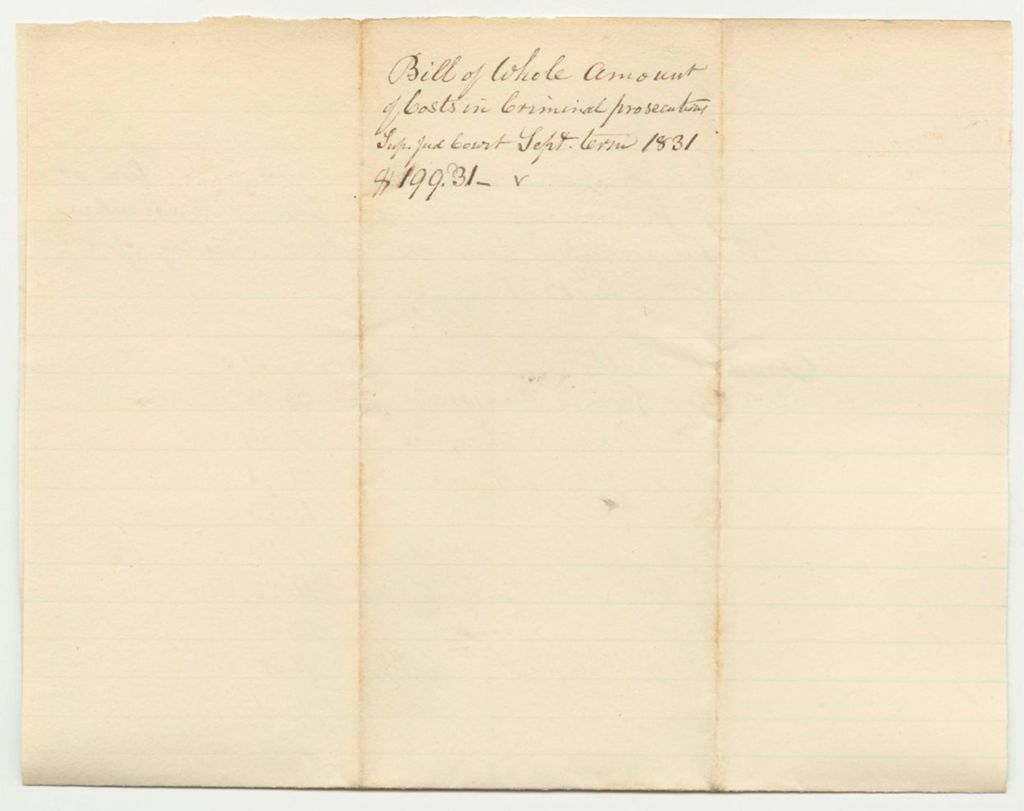 Bill of Whole Amount
of Costs in Criminal prosecutions
Sup. Jud Court Sept. term 1831
$199.31– v